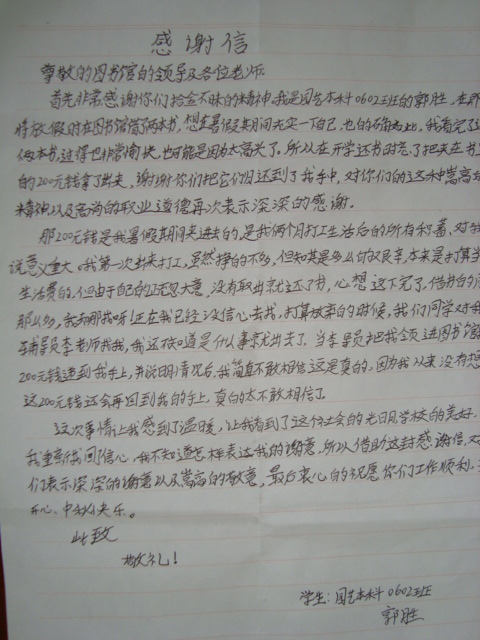 感谢信
尊敬的图书馆的领导及各位老师:
首先非常感谢你们拾金不昧的精神,我是园艺本科0602班的郭胜,在即
将放假时在图书馆借了两本书,想在暑假期间充实一下自己,也的确如此,我看完了这
两本书,过得也非常愉快,也可能是因为太高兴了。所以在开学还书时忘了把夹在书里
的200元钱拿了出来,谢谢你们把它们归还到了我手中,对你们的这种嵩高的
精神以及高尚的职业道德再次表示深深的感谢。
那200元钱是我暑假期间夹进去的,是我两个月打工生活后的所有积蓄,对我
说意义重大。我第一次出来打工,虽然挣的不多,但知其是多么的艰辛,本来是打算当
生活费的,但由于自己的证忽大意,没有取出就还了书,心想这下完了,借书的
那么多,我到那找呀!正在我已经没信心去找,打算放弃的时候,我们同学对我
辅导员李老师找我,我还不知道是什么事就出去了。当李导员把我领进图书馆
200元钱递到我手上,并说明情况后,我简直不敢相信这是真的,因为我从来没有想
这200元钱还会再回到我的手上,真的太不敢相信了。
这次事情让我感到了温暖,让我看到了这个社会的光明,学校的美好。
我重新找回信心,我不知道怎样表达我的谢意,所以借助这封感谢信,对
们表示深深的谢意以及嵩高的敬意,最后衷心的祝愿你们工作顺利,
开心、中秋快乐。
此致
敬礼!
学生:园艺本科0602班
郭胜